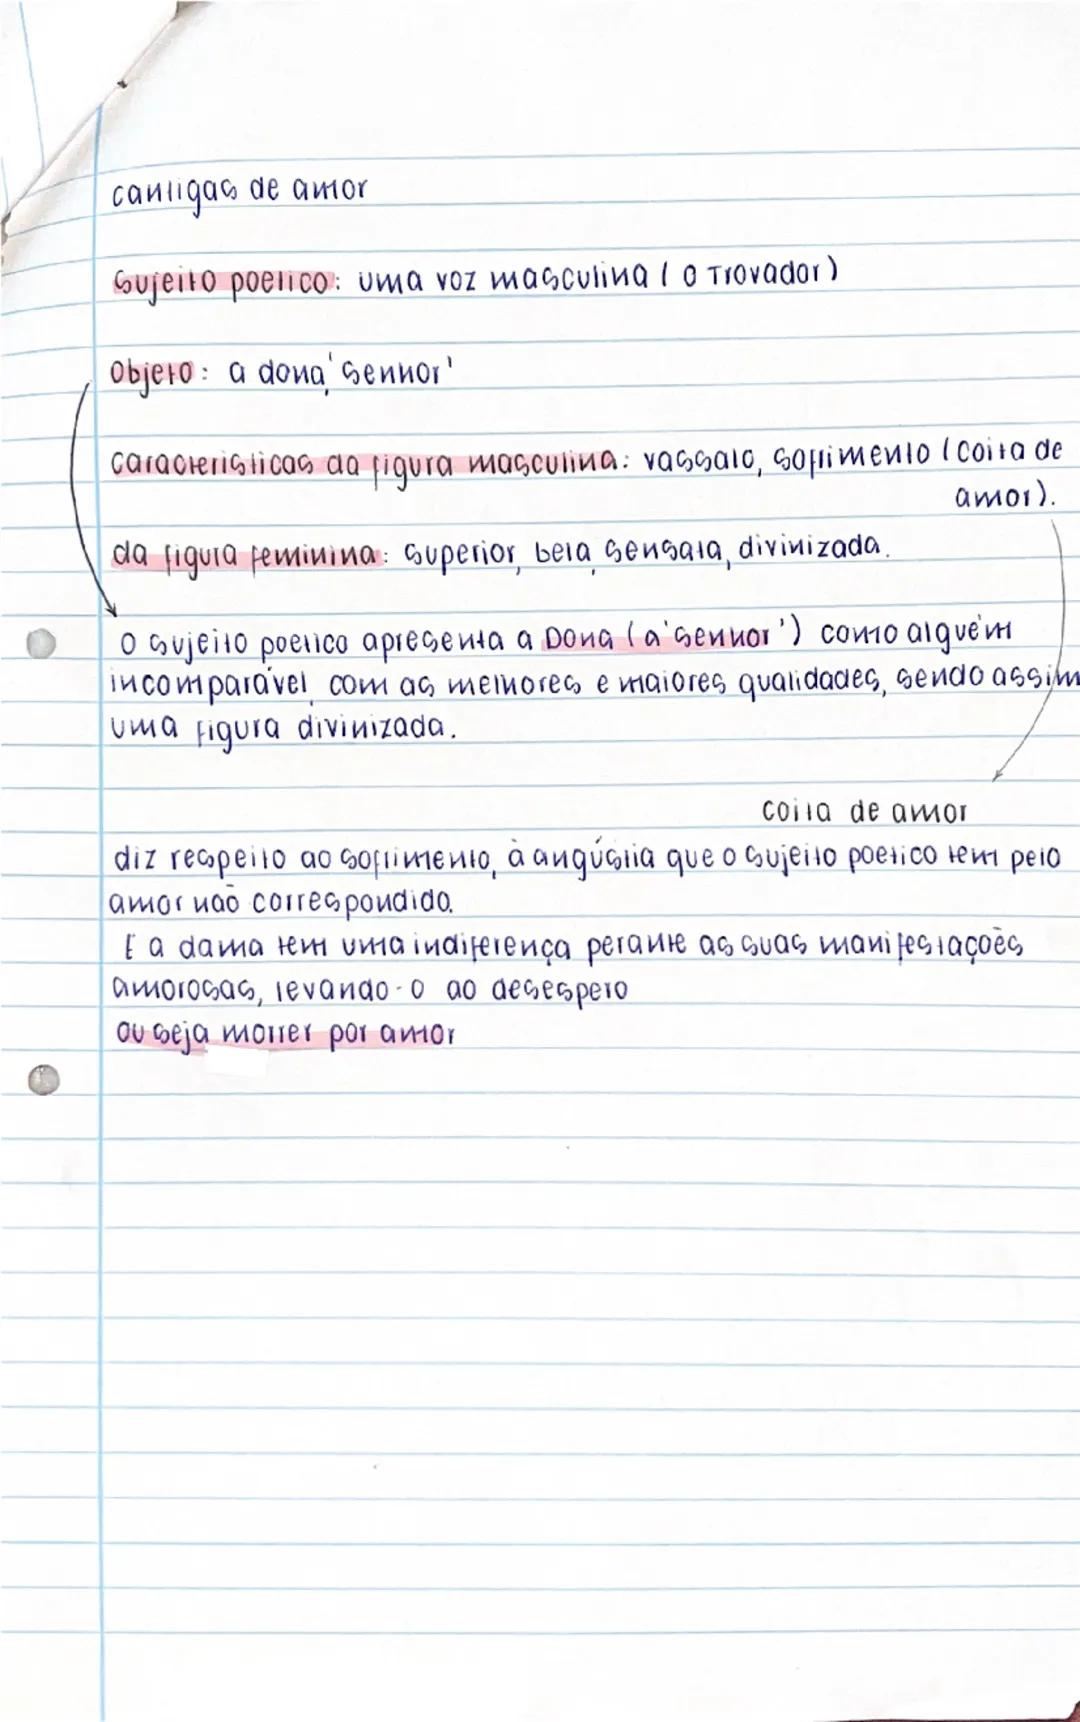 cantigas de amor
Sujeito poetico: uma voz masculina ( o Trovador)
Objeto: a dona 'senhor'
caracteristicas da figura masculina: vassalo, sofrimento (coita de
amor).
da figura feminina: superior, bela, sensata, divinizada.
O sujeito poetico apresenta a Dona (a 'senhor') como alguém
incomparável, com as melhores e maiores qualidades, sendo assim
uma figura divinizada.
coita de amor
diz respeito ao sofrimento, à angústia que o sujeito poetico tem pelo
amor não correspondido.
E a dama tem uma indiferença perante as suas manifestações
amorosas, levando-o ao desespero
ou seja morrer por amor